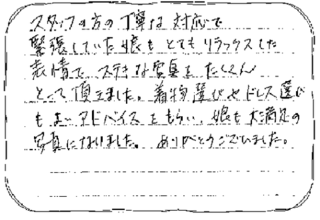 スタッフの方の丁寧な対応で
緊張していた娘もとてもリラックスした
表情でステキな写真をたくさん
とって頂きました。着物選びやドレス選び
もよいアドバイスをもらい、娘も大満足の
写真になりました。ありがとうございました。